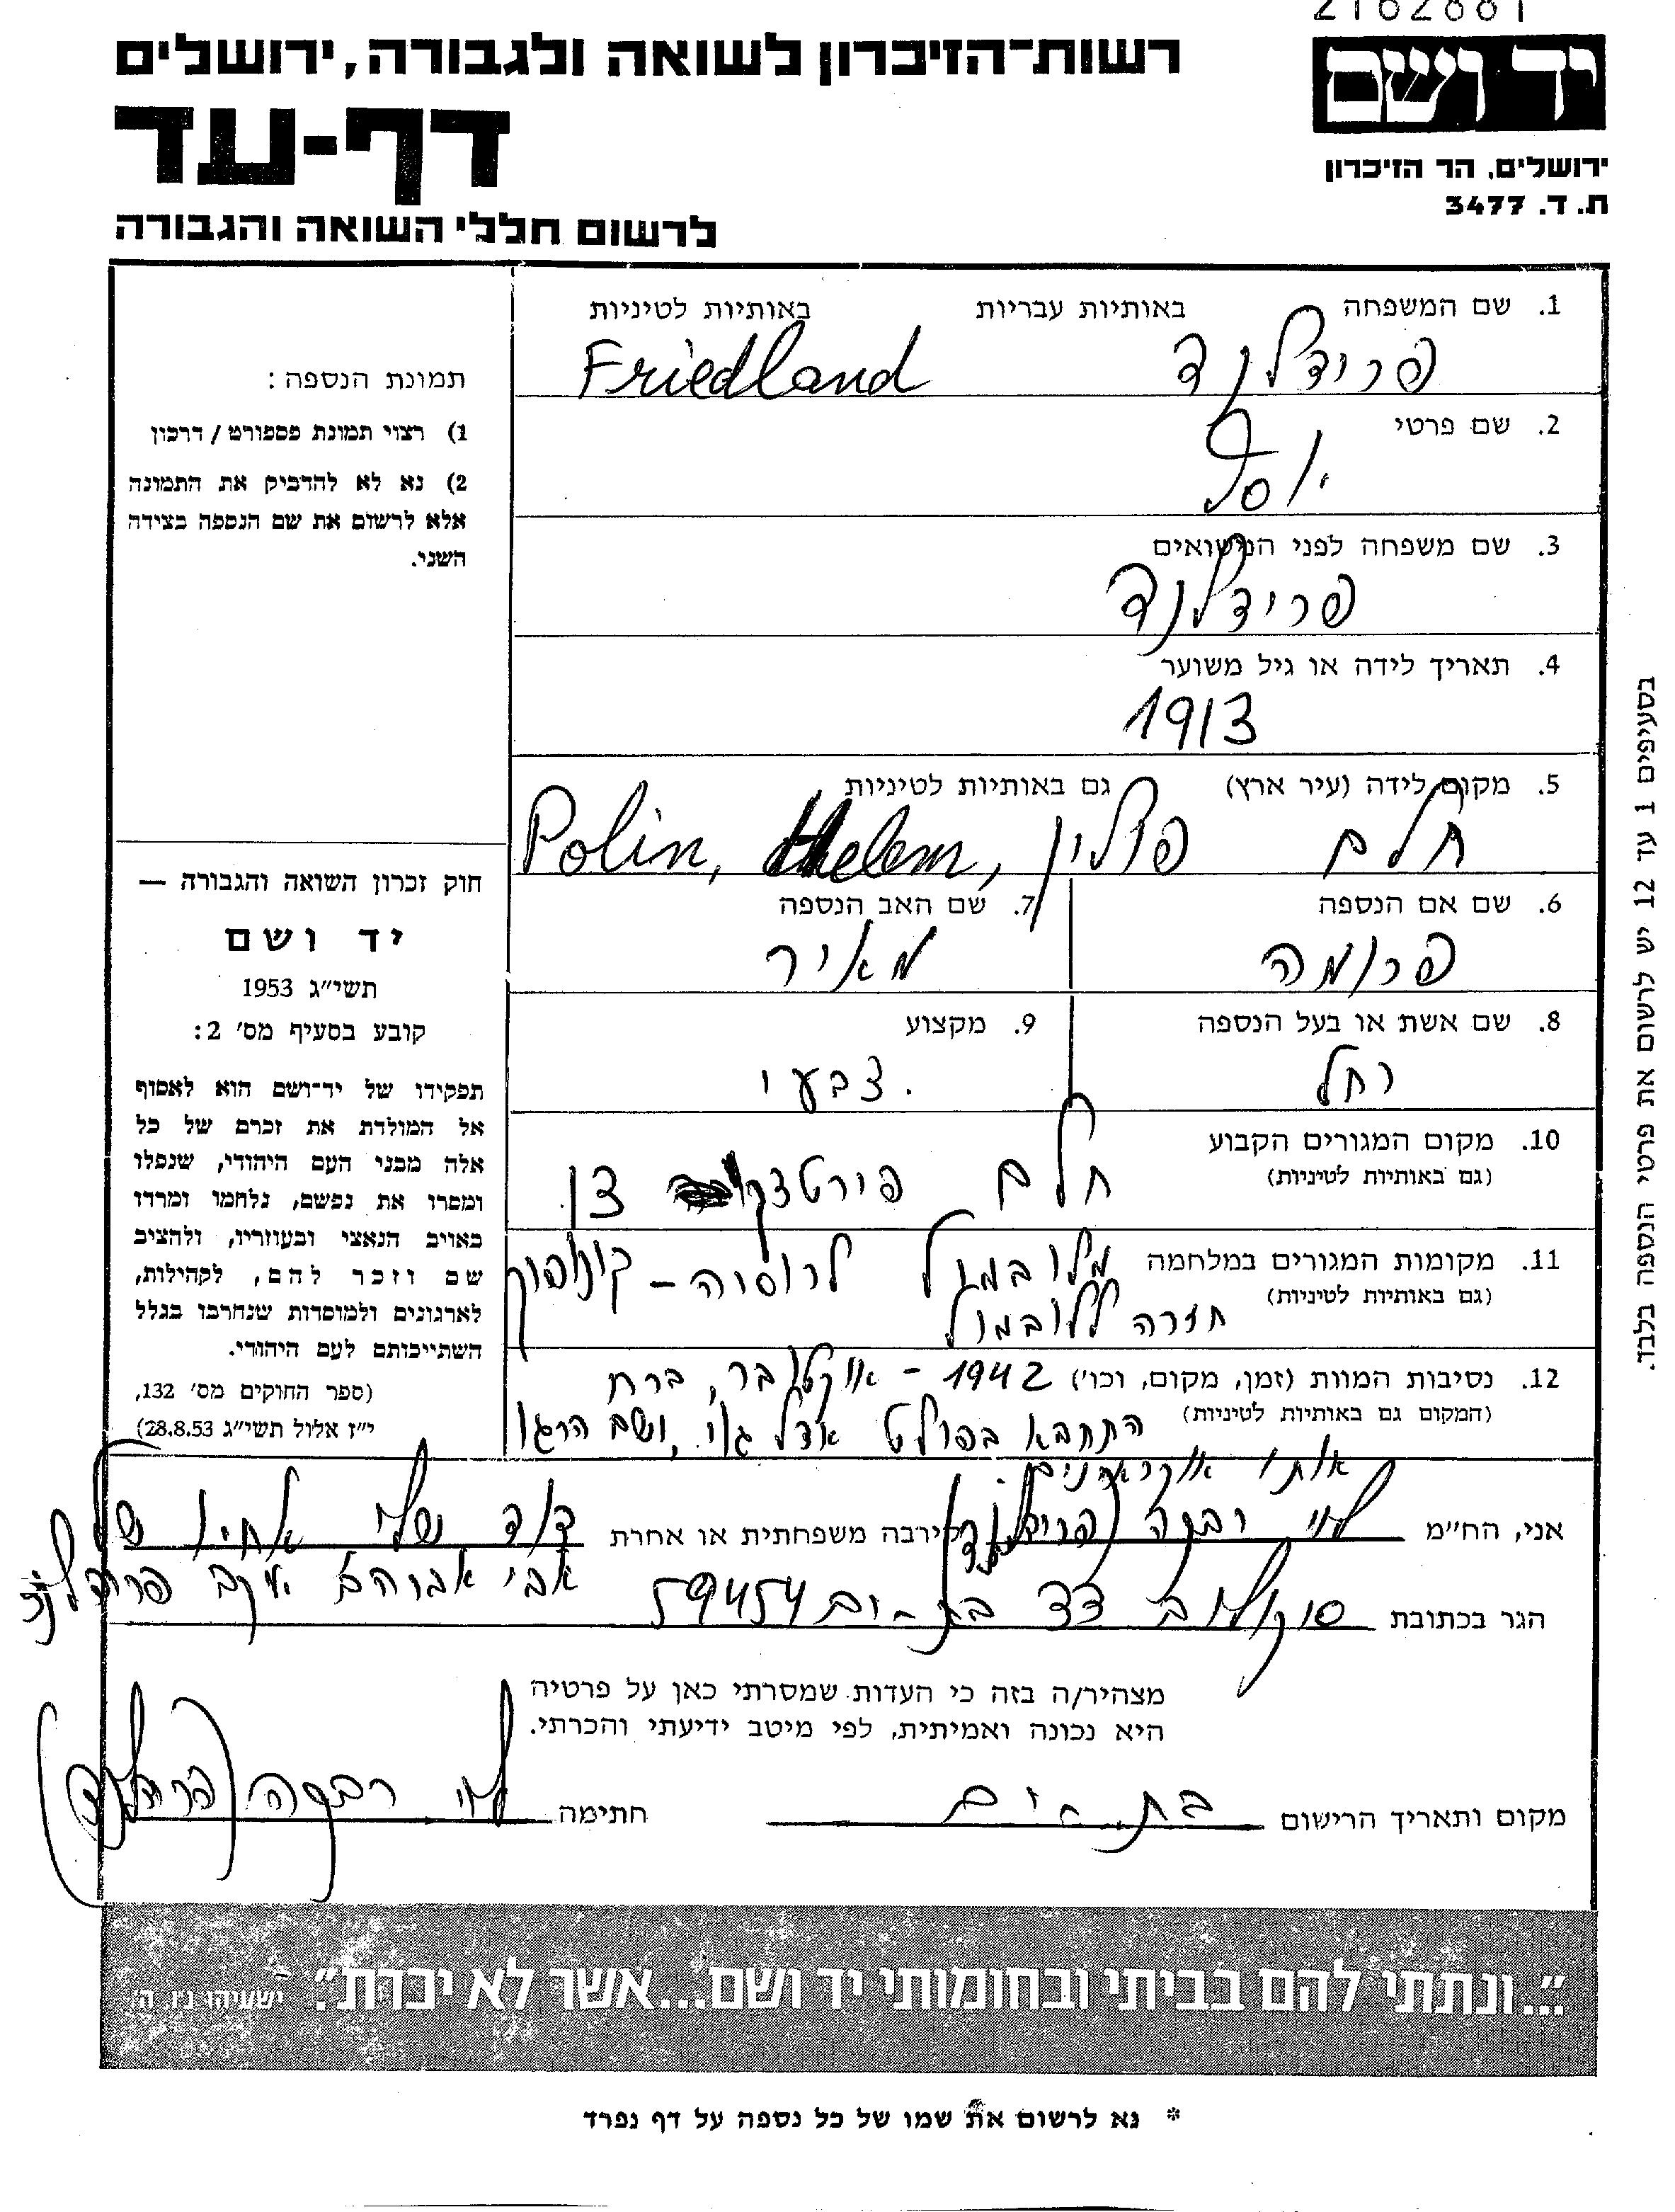 2162881
רשות־הזיכרון לשואה ולגבורה, ירושלים
יד ושם
דף-עד
ירושלים, הר הזיכרון
ת. ד. 3477
לרשום חללי השואה והגבורה
1. שם המשפחה באותיות עבריות באותיות לטיניות
פרידלנד Friedland
2. שם פרטי
יוסל
3. שם משפחה לפני הנישואים
פרידלנד
4. תאריך לידה או גיל משוער
1913
5. מקום לידה (עיר ארץ) גם באותיות לטיניות
חלם פולין, Polin, Helem
6. שם אם הנספה
פרומה
7. שם האב הנספה
מאיר
8. שם אשת או בעל הנספה
רחל
9. מקצוע
צבעי.
10. מקום המגורים הקבוע
(גם באותיות לטיניות)
חלם
11. מקומות המגורים במלחמה
(גם באותיות לטיניות)
מלובמול לרוסיה –
חזרה ללובמול
12. נסיבות המוות (זמן, מקום, וכו') 1942 – אוקטובר, ברח
(המקום גם באותיות לטיניות) התחבא אצל גוי, ושם הרגו
אותו אוקראינים.
תמונת הנספה:
1) רצוי תמונת פספורט / דרכון
2) נא לא להדביק את התמונה
אלא לרשום את שם הנספה בצידה
השני.
חוק זכרון השואה והגבורה —
יד ושם
תשי״ג 1953
קובע בסעיף מס' 2:
תפקידו של יד־ושם הוא לאסוף
אל המולדת את זכרם של כל
אלה מבני העם היהודי, שנפלו
ומסרו את נפשם, נלחמו ומרדו
באויב הנאצי ובעוזריו, ולהציב
שם וזכר להם, לקהילות,
לארגונים ולמוסדות שנחרבו בגלל
השתייכותם לעם היהודי.
(ספר החוקים מס' 132,
י״ז אלול תשי״ג 28.8.53)
בסעיפים 1 עד 12 יש לרשום את פרטי הנספה בלבד.
אני, הח״מ לוי רבקה (פרידלנד) קירבה משפחתית או אחרת דוד שלי אחיו של
אבי אברהם יעקב פרידלנד
הגר בכתובת סוקולוב בת-ים 59454
מצהיר/ה בזה כי העדות שמסרתי כאן על פרטיה
היא נכונה ואמיתית, לפי מיטב ידיעתי והכרתי.
מקום ותאריך הרישום בת-ים חתימה לוי רבקה (פרידלנד)
"...ונתתי להם בביתי ובחומותי יד ושם...אשר לא יכרת". ישעיהו נ״ו, ה'.
* נא לרשום את שמו של כל נספה על דף נפרד